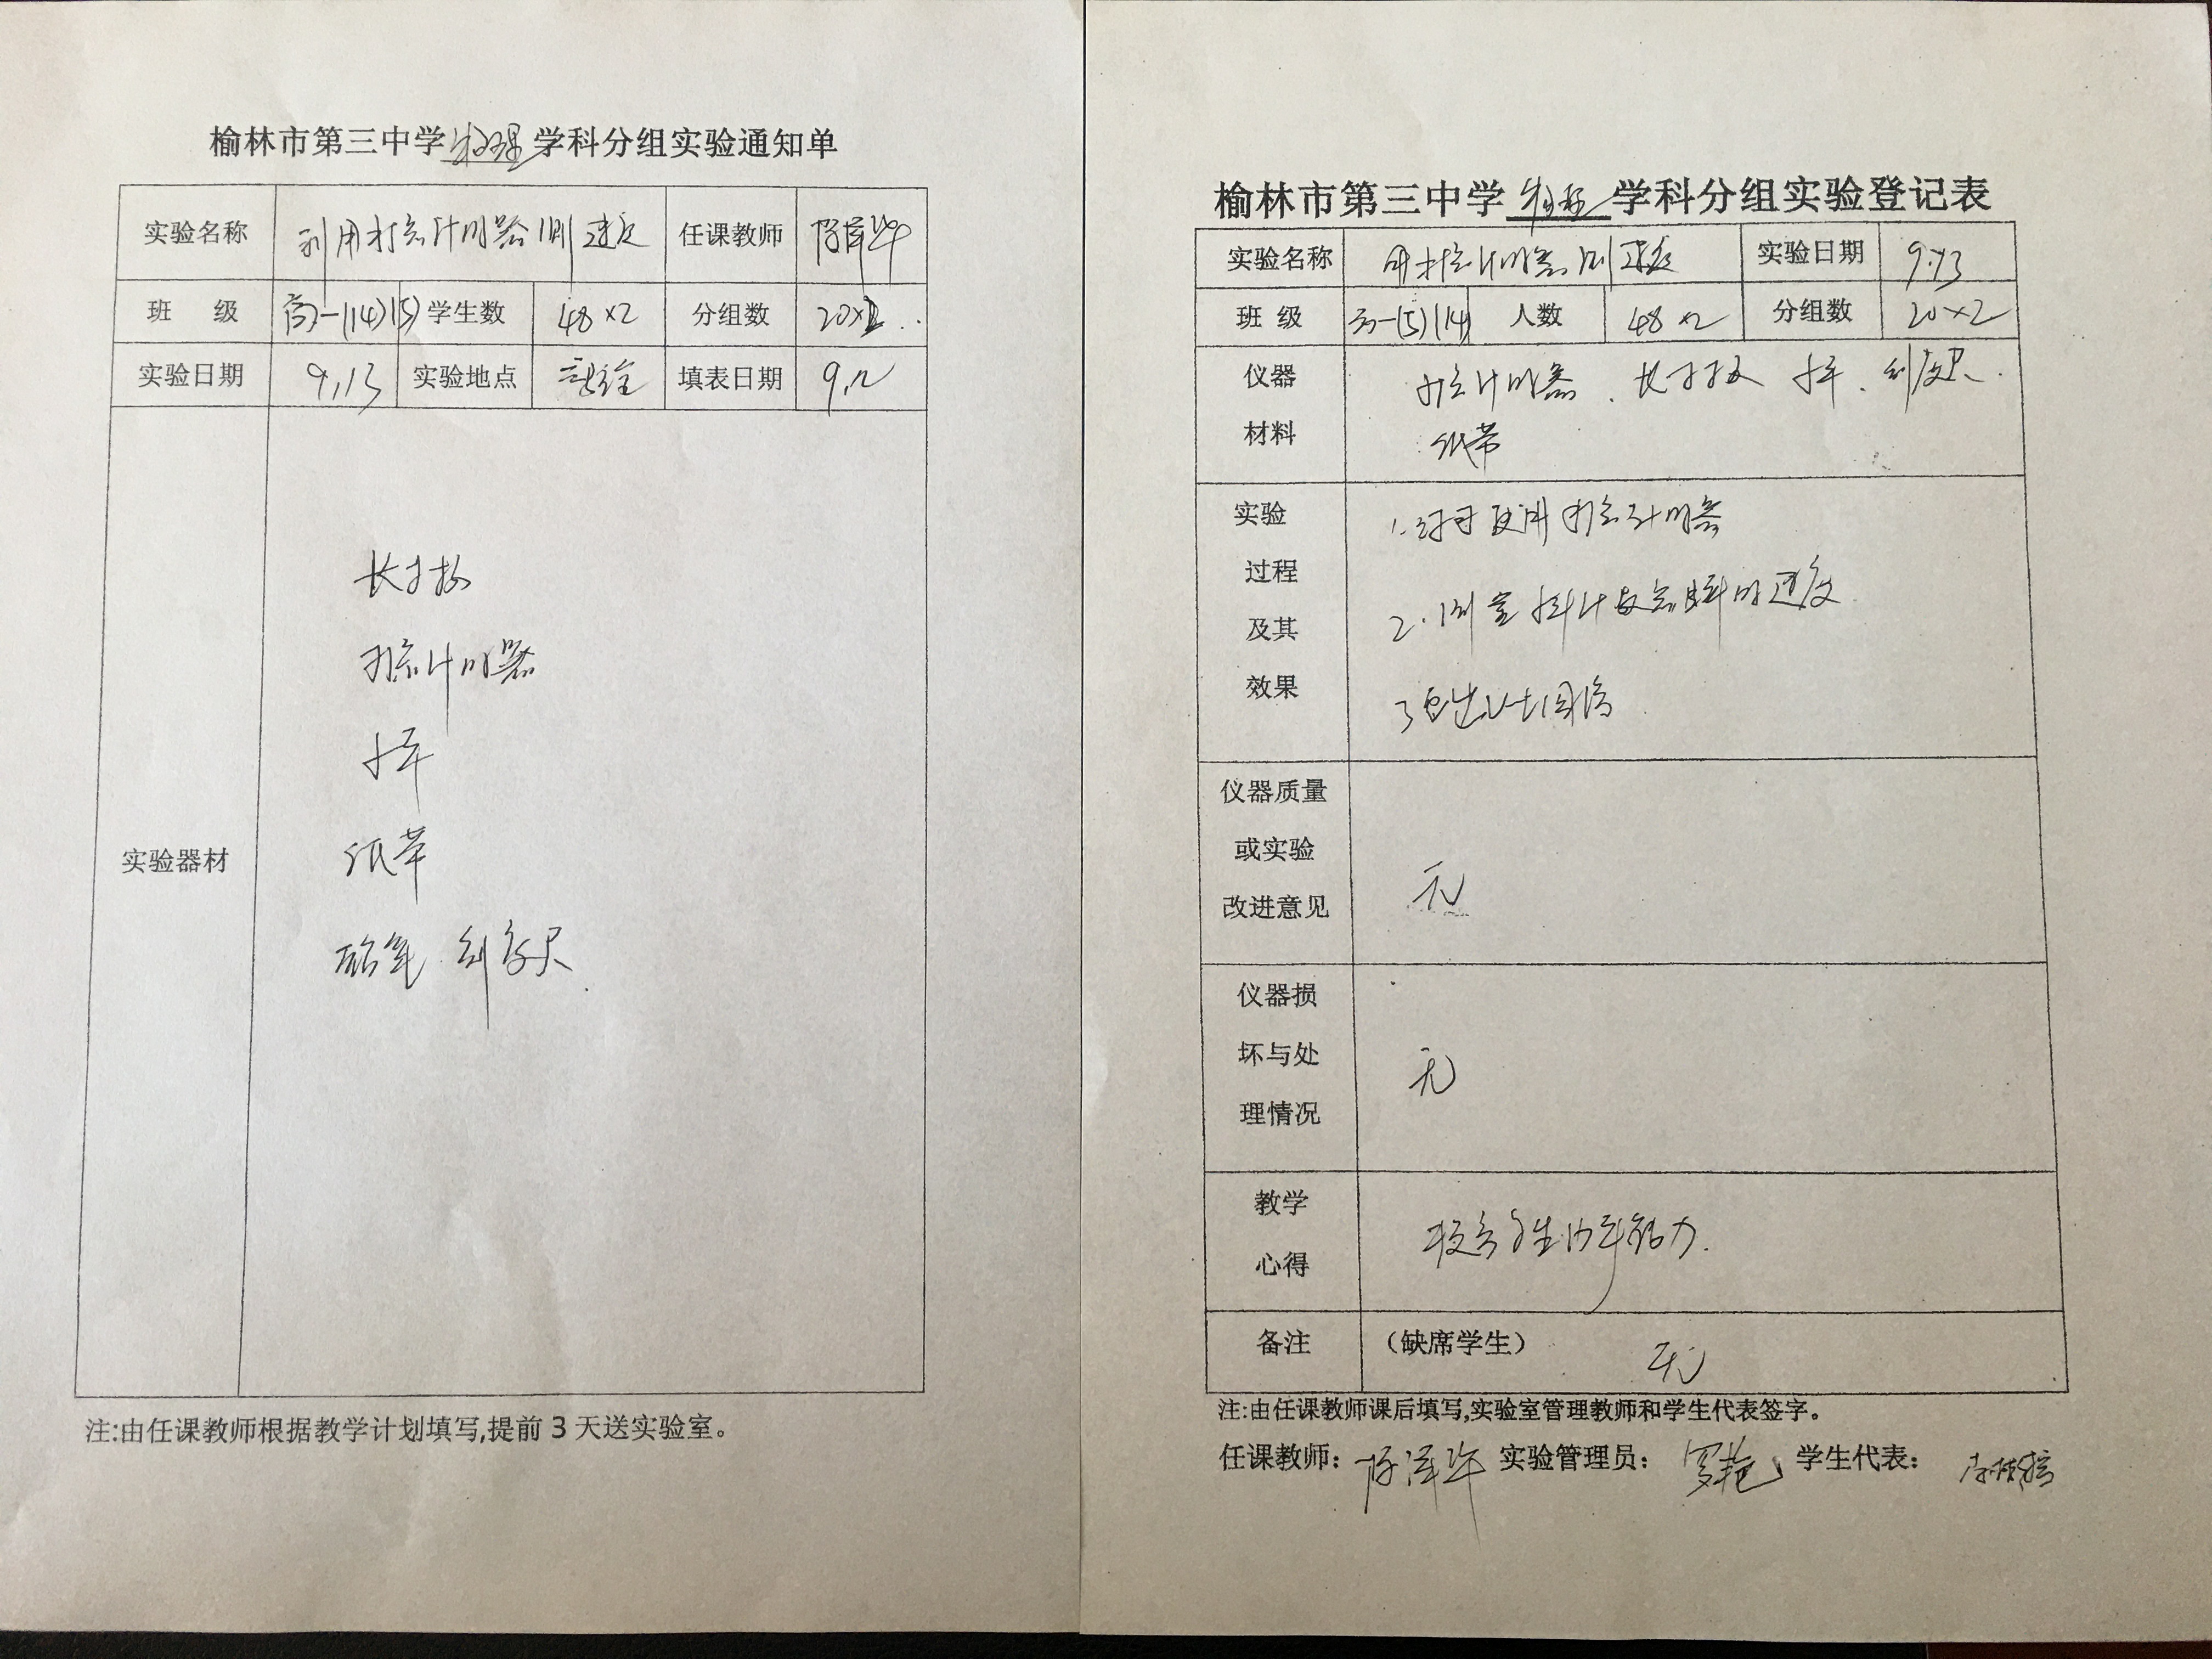 榆林市第三中学物理学科分组实验通知单
实验名称 利用打点计时器测速度 任课教师
班 级 高一(14)(5) 学生数 48×2 分组数 20×2
实验日期 9.13 实验地点 填表日期 9.12
实验器材
长木板
打点计时器
小车
纸带
刻度尺
注:由任课教师根据教学计划填写,提前3天送实验室。
榆林市第三中学物理学科分组实验登记表
实验名称 用打点计时器测速度 实验日期 9.13
班 级 高一(5)(14) 人数 48×2 分组数 20×2
仪器 打点计时器、长木板 小车、刻度尺、
材料 纸带
实验
过程
及其
效果
1. 使用打点计时器
2.测量小车计数点 的速度
3 画出v-t图像
仪器质量
或实验
改进意见
无
仪器损
坏与处
理情况
无
教学
心得
提高学生动手能力.
备注 (缺席学生) 无
注:由任课教师课后填写,实验室管理教师和学生代表签字。
任课教师: 实验管理员: 罗艳 学生代表: